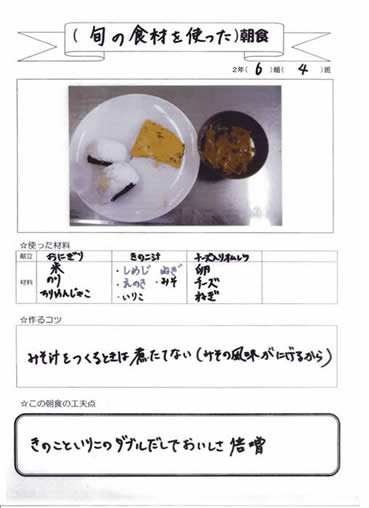 (旬の食材を使った)朝食
2年(6)組(4)班
☆使った材料
献立 おにぎり きのこ汁 チーズ入りオムレツ
材料 米 ・しめじ ねぎ 卵
のり ・えのき ・みそ チーズ
ちりめんじゃこ ・いりこ ねぎ
☆作るコツ
みそ汁をつくるときは煮たてない(みその風味がにげるから)
☆この朝食の工夫点
きのこといりこのダブルだしでおいしさ倍増